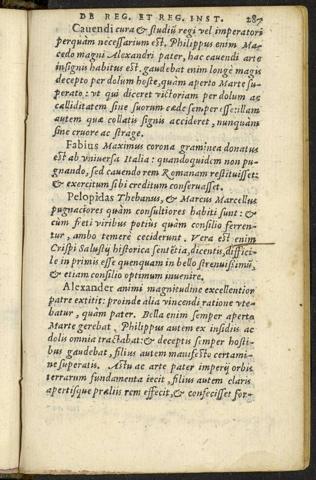 DE REG. ET REG. INST. 287
Cauendi cura & studiū regi vel imperatori
perquàm necessarium est. Philippus enim Ma-
cedo magni Alexandri pater, hac cauendi arte
insignis habitus est, gaudebat enim longè magis
decepto per dolum hoste, quàm aperto Marte su-
perato: vt qui diceret victoriam per dolum ac
calliditatem sine suorum cæde semper esse: illam
autem quæ collatis signis accideret, nunquàm
sine cruore ac strage.
Fabius Maximus corona graminea donatus
est ab vniuersa Italia: quandoquidem non pu-
gnando, sed cauendo rem Romanam restituisset:
& exercitum sibi creditum conseruasset.
Pelopidas Thebanus, & Marcus Marcellus
pugnaciores quàm consultiores habiti sunt: &
cùm freti viribus potius quàm consilio ferren-
tur, ambo temerè ceciderunt. Vera est enim
Crispi Salustij historica sentētia, dicentis, diffici-
le in primis esse quenquam in bello strenuissimū,
& etiam consilio optimum inuenire.
Alexander animi magnitudine excellentior
patre extitit: proinde alia vincendi ratione vte-
batur, quam pater. Bella enim semper aperto
Marte gerebat, Philippus autem ex insidiis ac
dolis omnia tractabat: & deceptis semper hosti-
bus gaudebat, filius autem manifesto certami-
ne superatis. Astu ac arte pater imperij orbis
terrarum fundamenta iecit, filius autem claris
apertisque præliis rem effecit, & confecisset for-